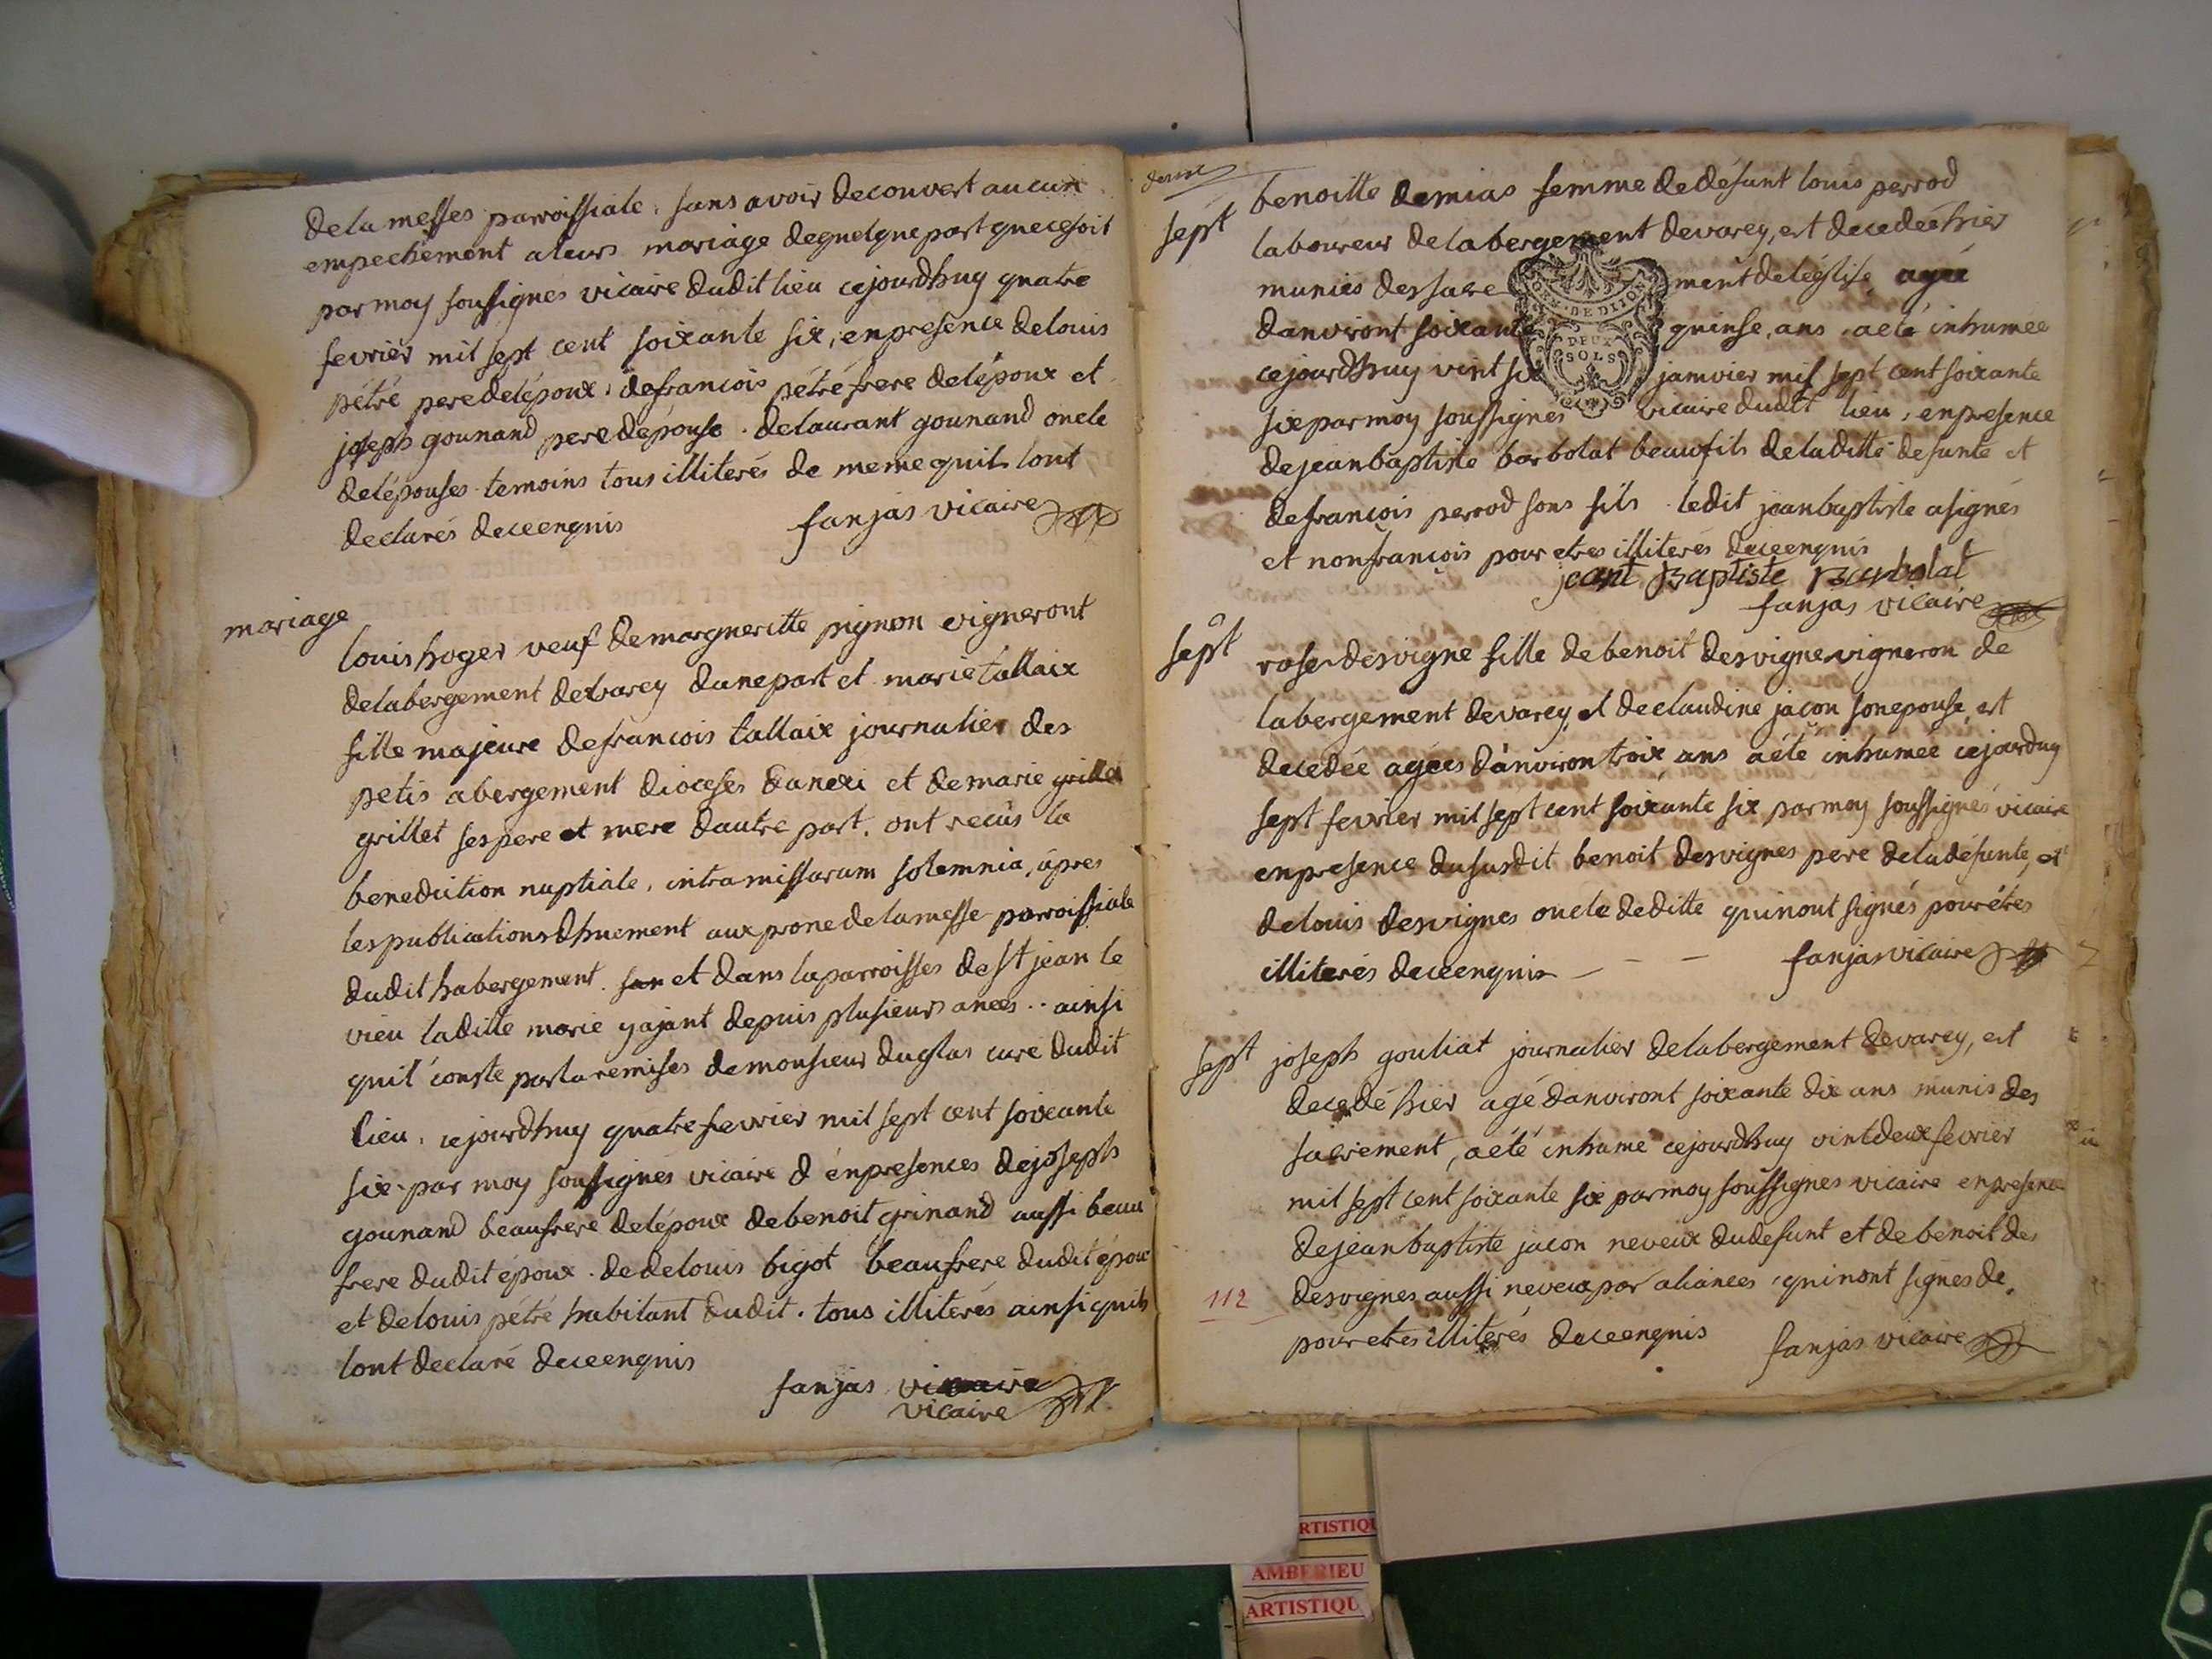 de la messes parroissiale. sans avoir decouvert aucun
empechement a leurs mariage de quelque part que ce soit
par moy soussignes vicaire dudit lieu cejourdhuy quatre
fevrier mil sept cent soixante six, en presence de louis
pétré pere de lépoux. de francois pétré frere de lépoux et
joseph gounand pere dépouse. de laurant gounand oncle
de lépouses temoins tous illiterés de meme quils lont
declarés de ce enquis fanjas vicaire
mariage
louis hoger veuf de margueritte pignon vigneront
de labergement de varey dune part et marie tallaix
fille majeure de francois tallaix journalier des
petis abergement dioceses daneci et de marie grillet
grillet ses pere et mere dautre part. ont recûs la
benediction nuptiale, intra missarum solemnia, âpres
les publications dhuement aux prone de la messe parroissiale
dudit habergement. san et dans la parroisses de st jean le
vieu laditte marie y ajant depuis plusieurs anées.. ainsi
quil conste par la remises de monsieur duglas cure dudit
lieu. cejourdhuy quatre fevrier mil sept cent soixante
six par moy soussignés vicaire d énpresences de joseph
gounand beaufrere de lépoux de benoit grinand aussi beau
frere dudit époux. de de louis bigot beaufrere dudit époux
et de louis pétré habitant dudit. tous illiterés ainsi quils
lont declaré de ce enquis
fanjas vicaire
vicaire
sept
benoitte demias femme de défunt louis perrod
laboureur de labergement de varey, est decedeé hier
muniés des sacre ment de léglise ageé
danviront soixante quinse, ans a eté inhumee
cejourdhuy vint six janvier mil sept cent soixante
GEN. DE DIJON
DEUX
SOLS
six par moy soussignes vicaire dudit lieu, en presence
de jean baptiste barbolat beaufils de laditte defunte et
de françois perrod sons fils ledit jean baptiste a signés
et non francois pour etres illiterés de ce enquis
jeant Baptiste Barbolat
fanjas vicaire
sept
rose desvigne fille de benoit desvigne vigneron de
labergement de varey et de claudine jacon son epouse, est
decedée agées dánviron troix ans a éte inhumeé cejourduy
sept fevrier mil sept cent soixante six par moy soussignés vicaire
en presence du susdit benoit desvignes pere de la défunte, et
de louis desvignes oncle de ditte qui nont signés pour étres
illiterés de ce enquis fanjas vicaire
sept
joseph gouliat journalier de labergement de varey, est
decedé hier agé danviront soixante dix ans munis des
sacrement, a été inhumé cejourdhuy vint deux fevrier
mil sept cent soixante six par moy soussignes vicaire en presence
de jean baptiste jacon neveux du defunt et de benoit des
desvignes aussi neveux par aliances qui nont signes de
pour etres illiterés de ce enquis fanjas vicaire
112
RTISTIQU
AMBERIEU
ARTISTIQU